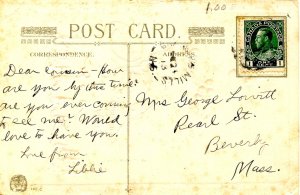 1.00
POST CARD.
CORRESPONDENCE.
ADDRESS.
Dear Cousin - How
are you by this time?
are you ever coming
to see me? Would
love to have you.
Love from
Libbie
MILLS
Mrs George Lovitt
Pearl St.
Beverly
Mass.
1
1